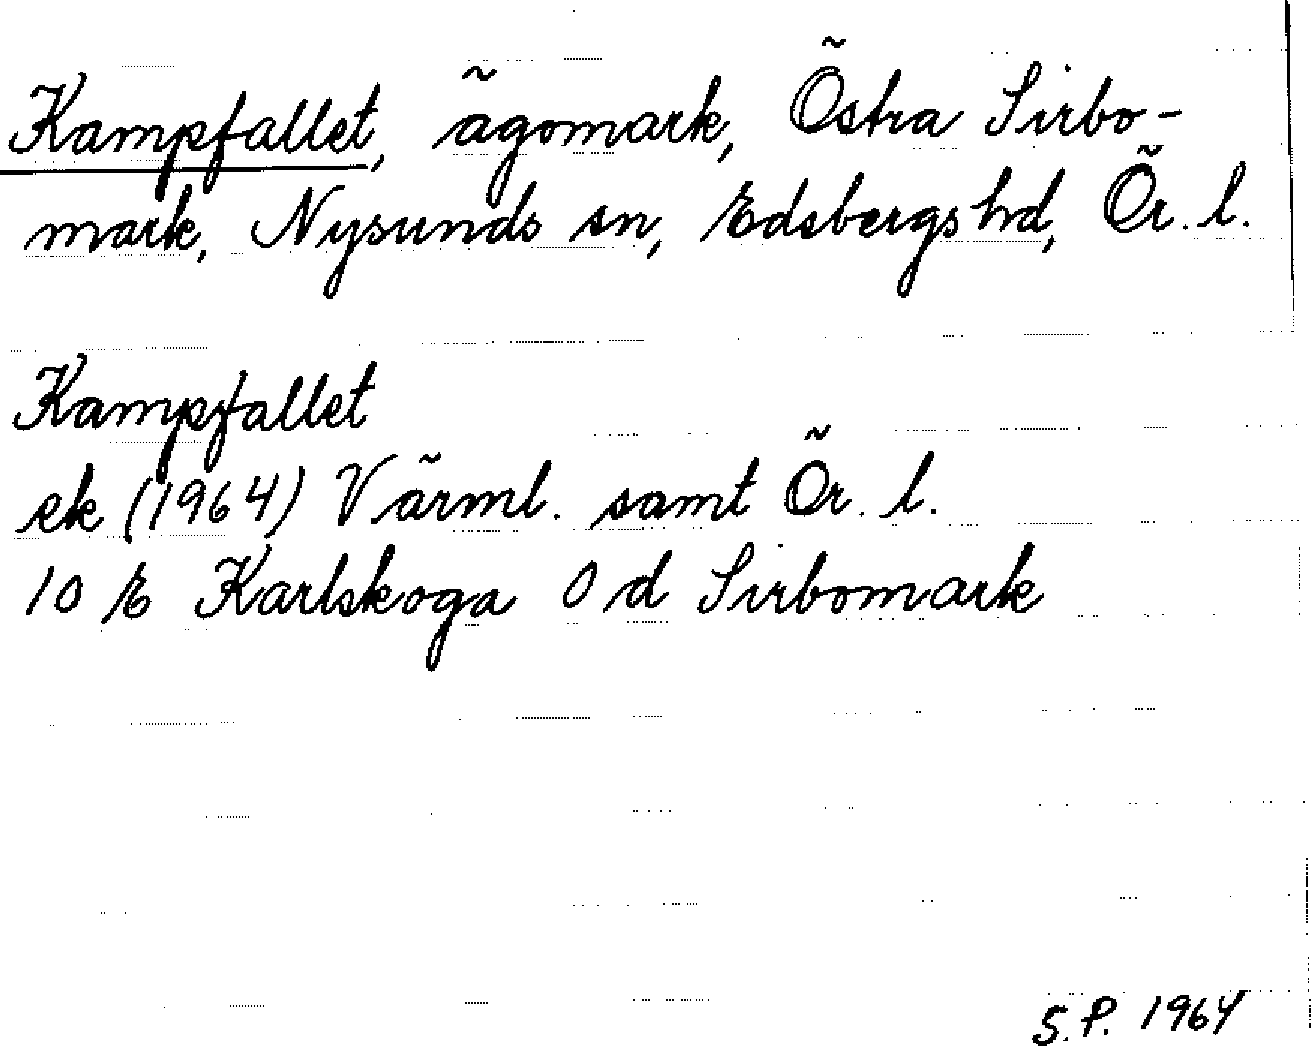 Kampfallet, ägomark, Östra Sirbo-
mark, Nysunds sn, Edsbergs hd, Ör. l.
Kampfallet
ek (1964) Värml. samt Ör. l.
10 E Karlskoga 0 d Sirbomark
S.P. 1964